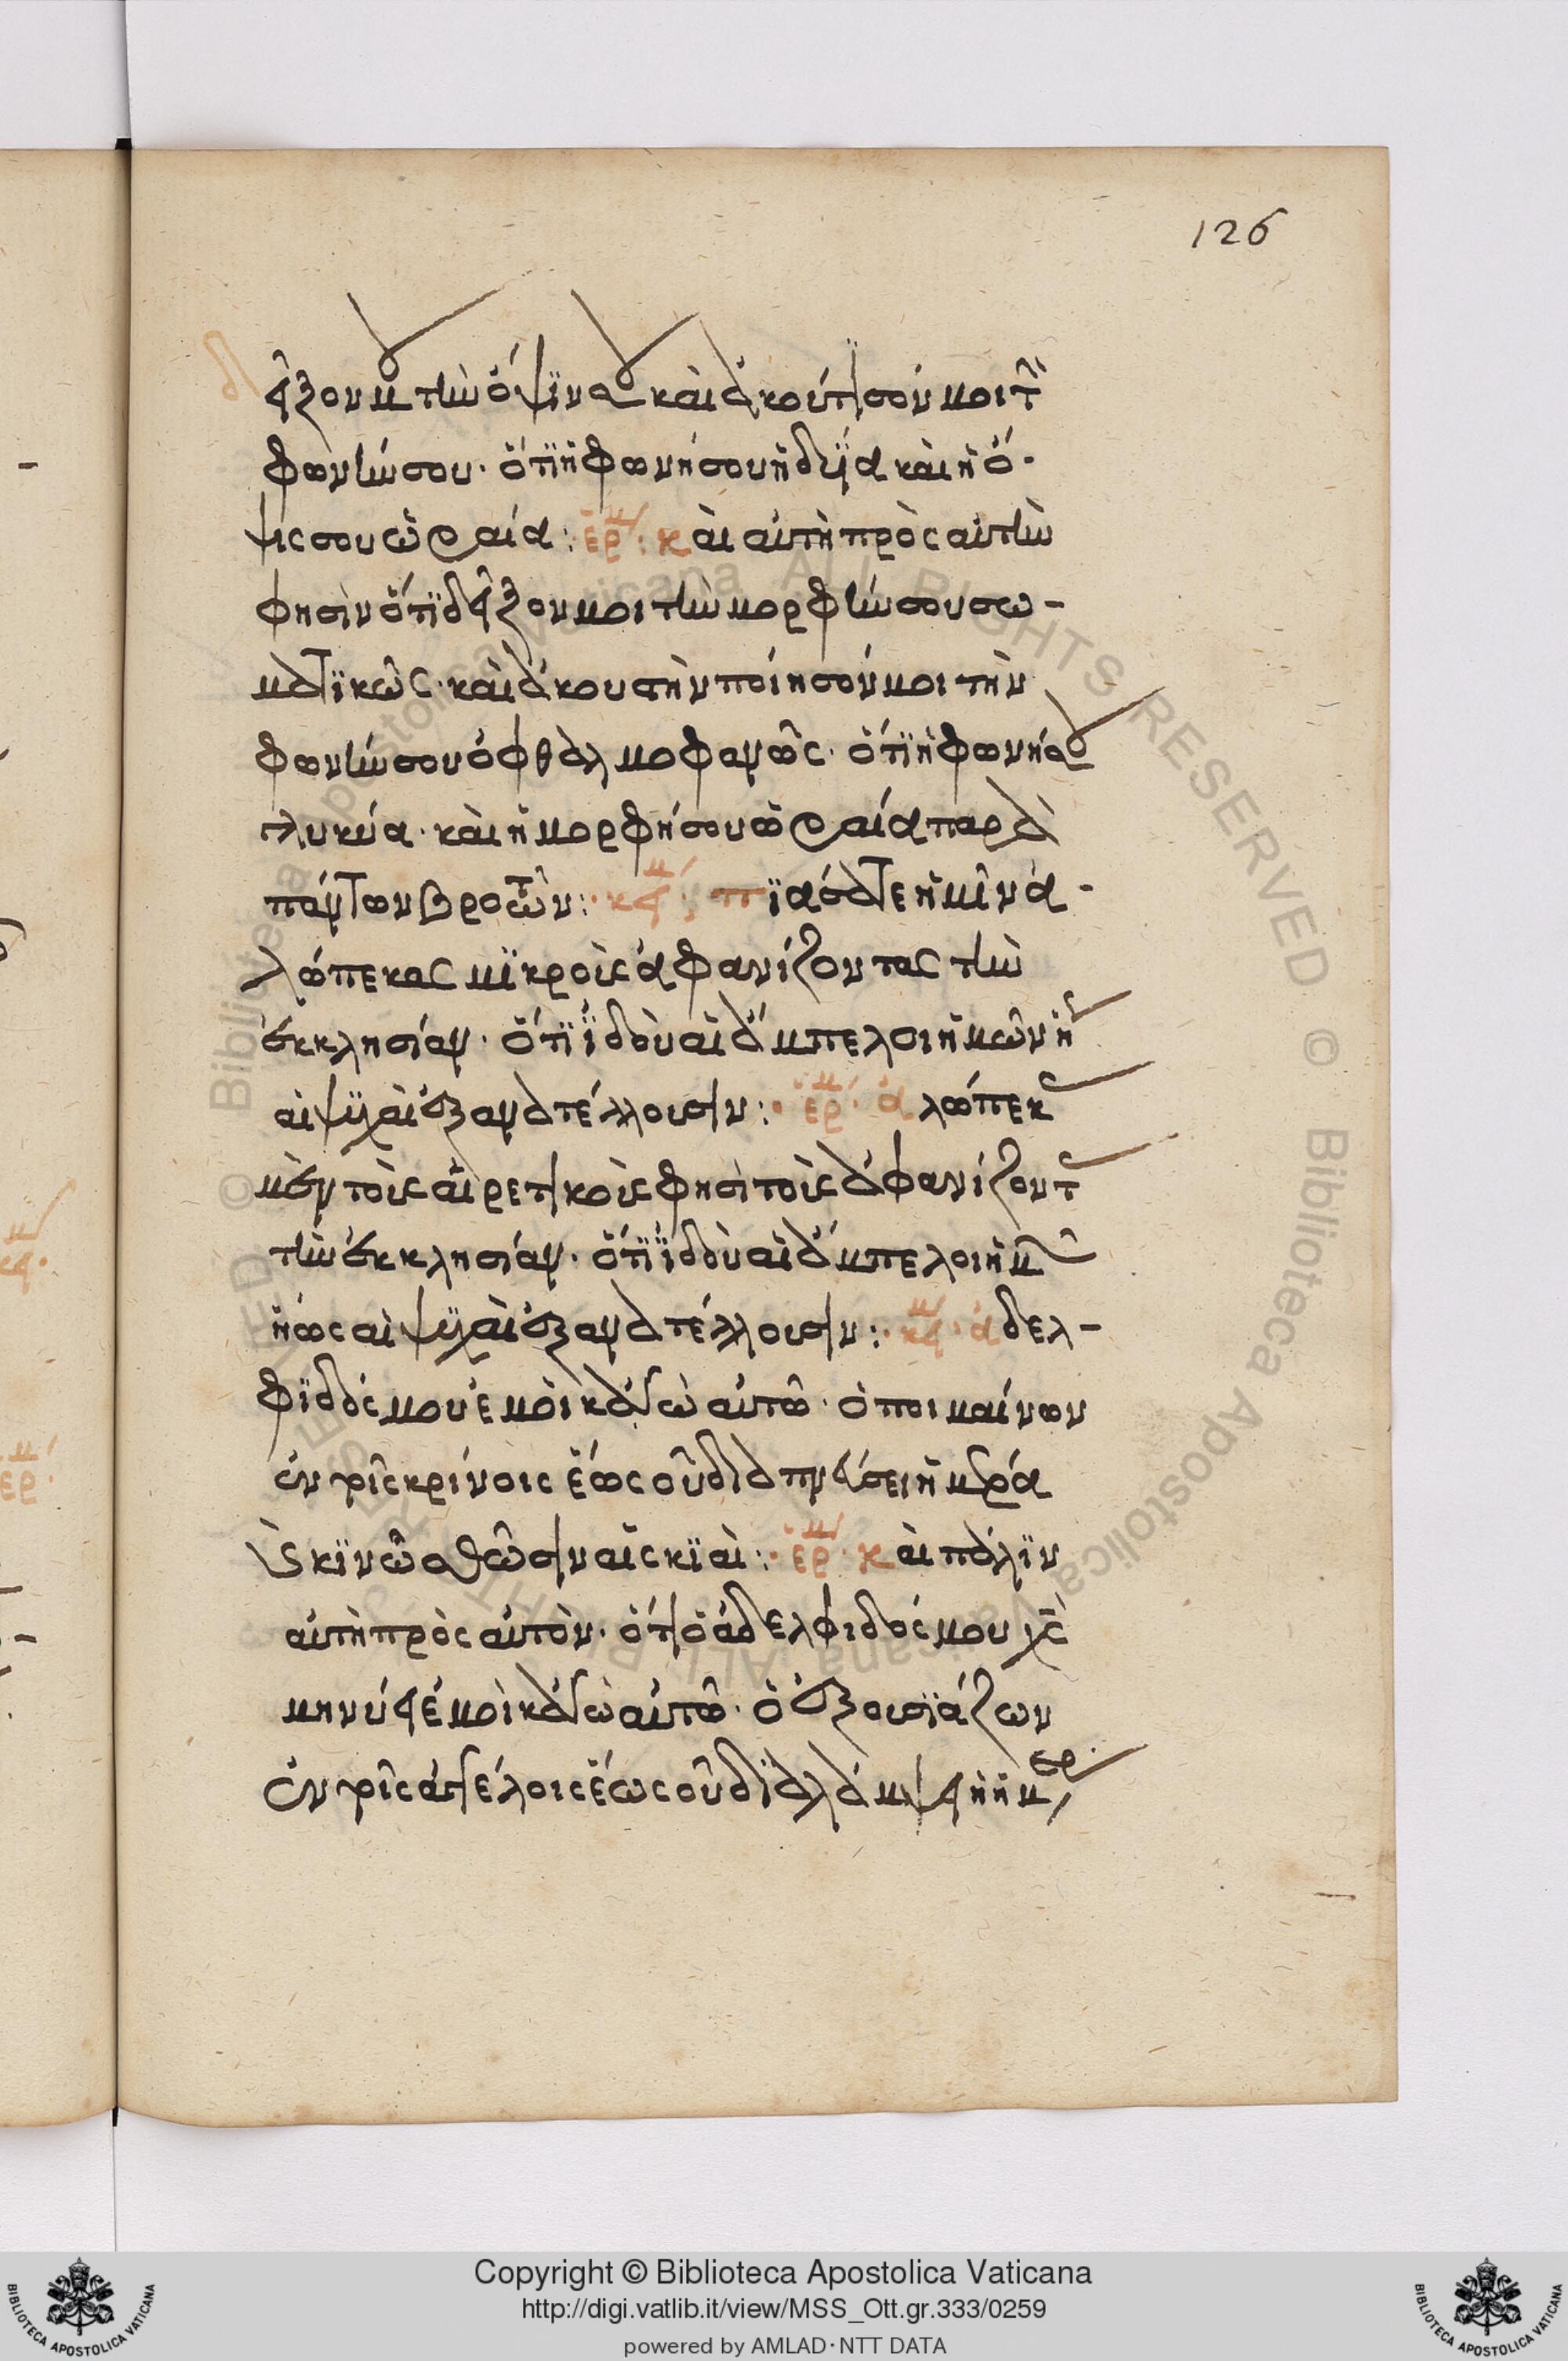 126
δεῖξον μοι τὴν ὄψϊν σου καὶ ἀκούτισόν μοι τὴν
φωνήν σου. ὅτϊ ἡ φωνή σου ἡδεῖα καὶ ἡ ὄ-
ψις σου ὡραία: ἑρμ: καὶ αὐτὴ πρὸς αὐτὴν
φησὶν ὅτϊ δεῖξον μοι τὴν μορφήν σου σω-
ματϊκῶς. καὶ ἀκουστὴν ποίησόν μοι τὴν
φωνήν σου ὀφθαλμοφανῶς. ὅτϊ ἡ φωνή σου
γλυκεία. καὶ ἡ μορφή σου ὡραία παρὰ
πάντων βροτῶν: κείμ: πϊάσατε ἡμῖν ἀ-
λώπεκας μϊκροὺς ἀφανίζοντας τὴν
ἐκκλησίαν. ὅτϊ ἰδοὺ αἱ ἄμπελοι ἡμῶν ἢ
αἱ ψυχαὶ ἐξανατέλλουσιν: ἑρμ. ἀλώπεκας
μὲν τοὺς αἱρετικοὺς φησὶ τοὺς ἀφανίζοντας
τὴν ἐκκλησίαν. ὅτϊ ἰδοὺ αἱ ἄμπελοι ἡμῶν
ἡώς αἱ ψυχαὶ ἐξανατέλλουσιν: κείμ. ἀδελ-
φϊδός μου ἐμοὶ κἀγὼ αὐτῶ. ὁ ποιμαίνων
ἐν τοῖς κρίνοις ἕως οὗ διαπνεύσει ἡμέρα
καὶ κϊνωθῶσιν αἱ σκϊαί: ἑρμ. καὶ πάλϊν
αὐτὴ πρὸς αὐτὸν. ὅτι ὁ ἀδελφιδός μου χς
μηνύει ἐμοὶ κἀγὼ αὐτῶ. ὁ ἐξουσϊάζων
ἐν τοῖς ἀγγέλοις ἕως οὗ δϊαλάμψει ἡ ἡμέρα
Copyright © Biblioteca Apostolica Vaticana
http://digi.vatlib.it/view/MSS_Ott.gr.333/0259
powered by AMLAD·NTT DATA